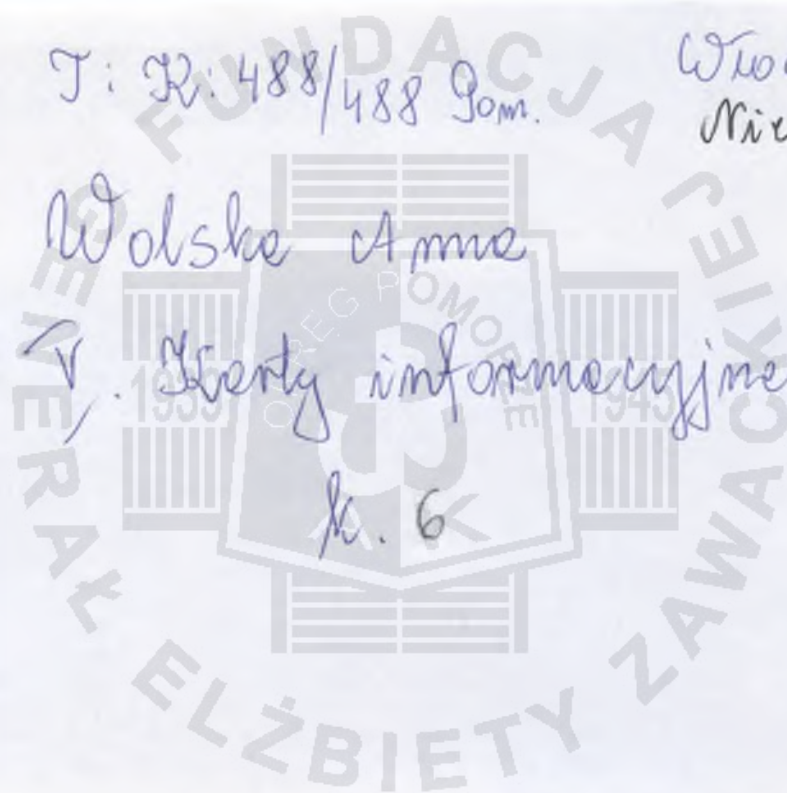 T: K: 488/488 Pom.
Wolska Anna
V. Karty informacyjne
k. 6
FUNDACJA GENERAŁ ELŻBIETY ZAWACKIEJ
OKRĘG POMORZE
1939 1945
AK